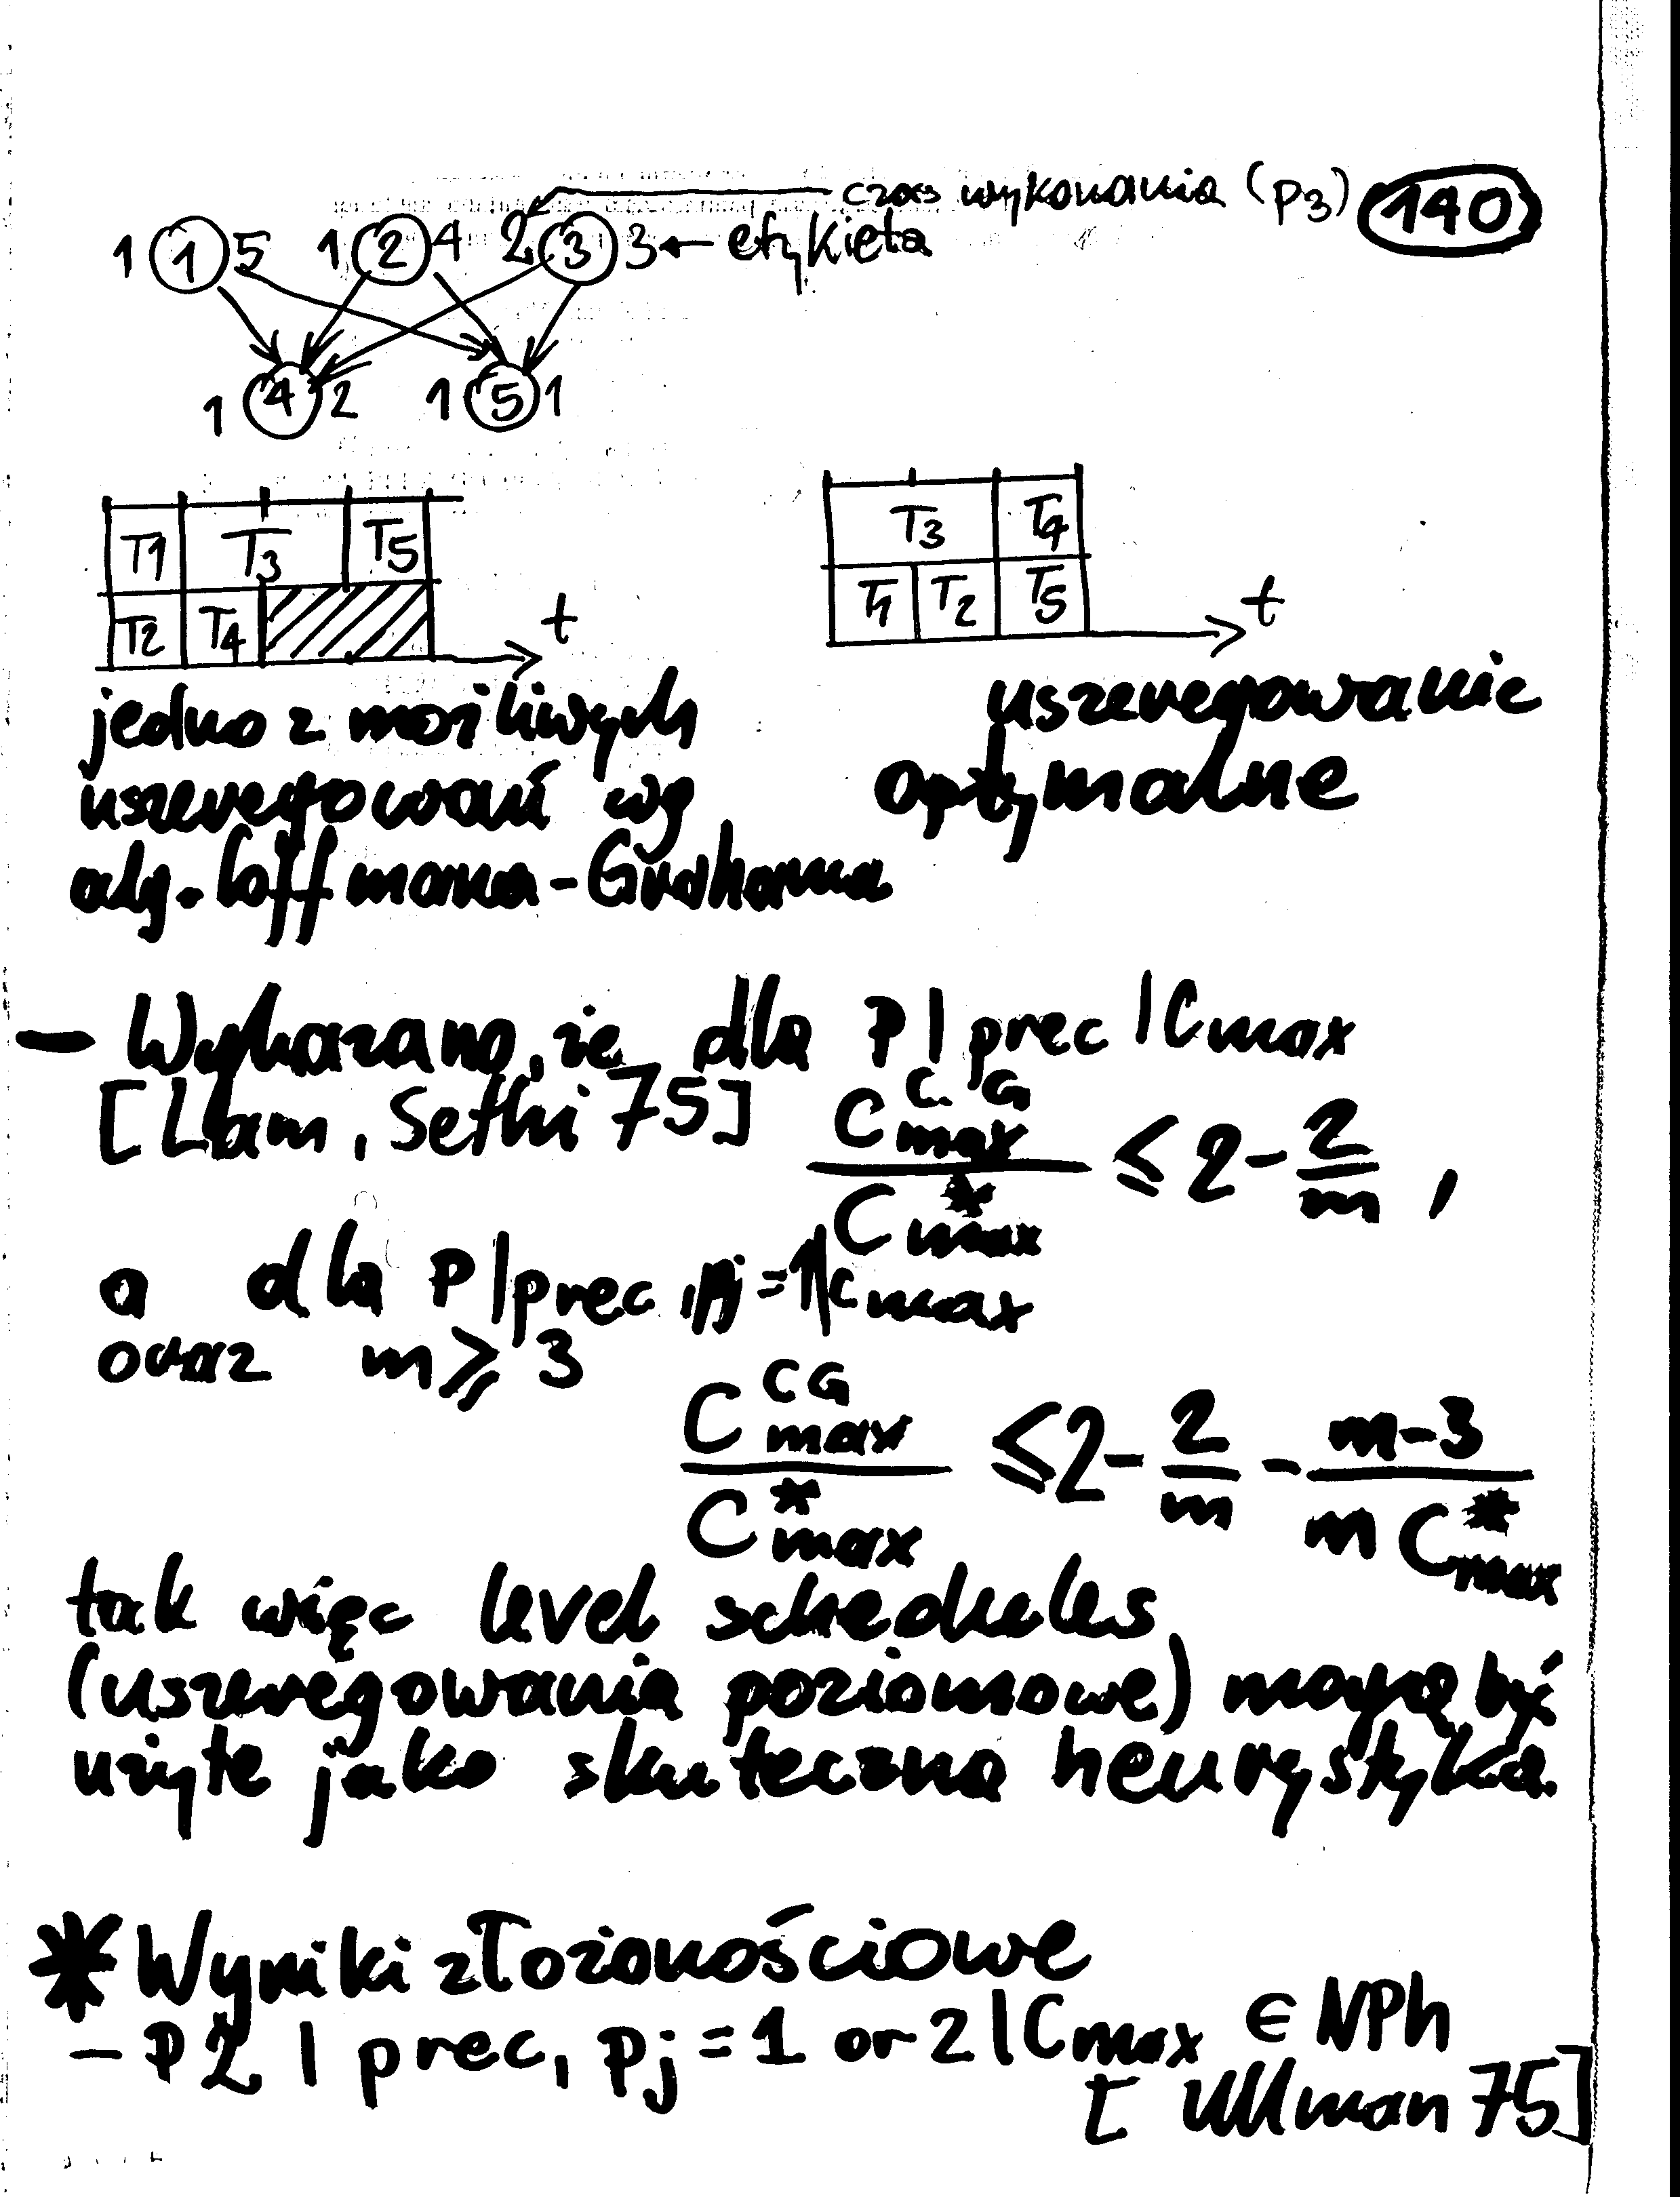 czas wykonania (p3) 140
1 1 5 1 2 4 2 3 3 ← etykieta
1 4 2 1 5 1
T1 T3 T5
T2 T4 t
T3 T4
T1 T2 T5 t
jedno z możliwych
uszeregowań wg
alg. Coffmana-Grahama
uszeregowanie
optymalne
— Wykazano, że dla P | prec | Cmax
[Lam, Sethi 75] C^{C.G}_{max} / C^{*}_{max} ≤ 2 - 2/m ,
a dla P | prec, pj = 1 | Cmax
oraz m ≥ 3
C^{CG}_{max} / C^{*}_{max} ≤ 2 - 2/m - (m-3)/(m C^{*}_{max})
tak więc level schedules
(uszeregowania poziomowe) mogą być
użyte jako skuteczna heurystyka.
* Wyniki złożonościowe
— P2 | prec, pj = 1 or 2 | Cmax ∈ NPh
[Ullman 75]